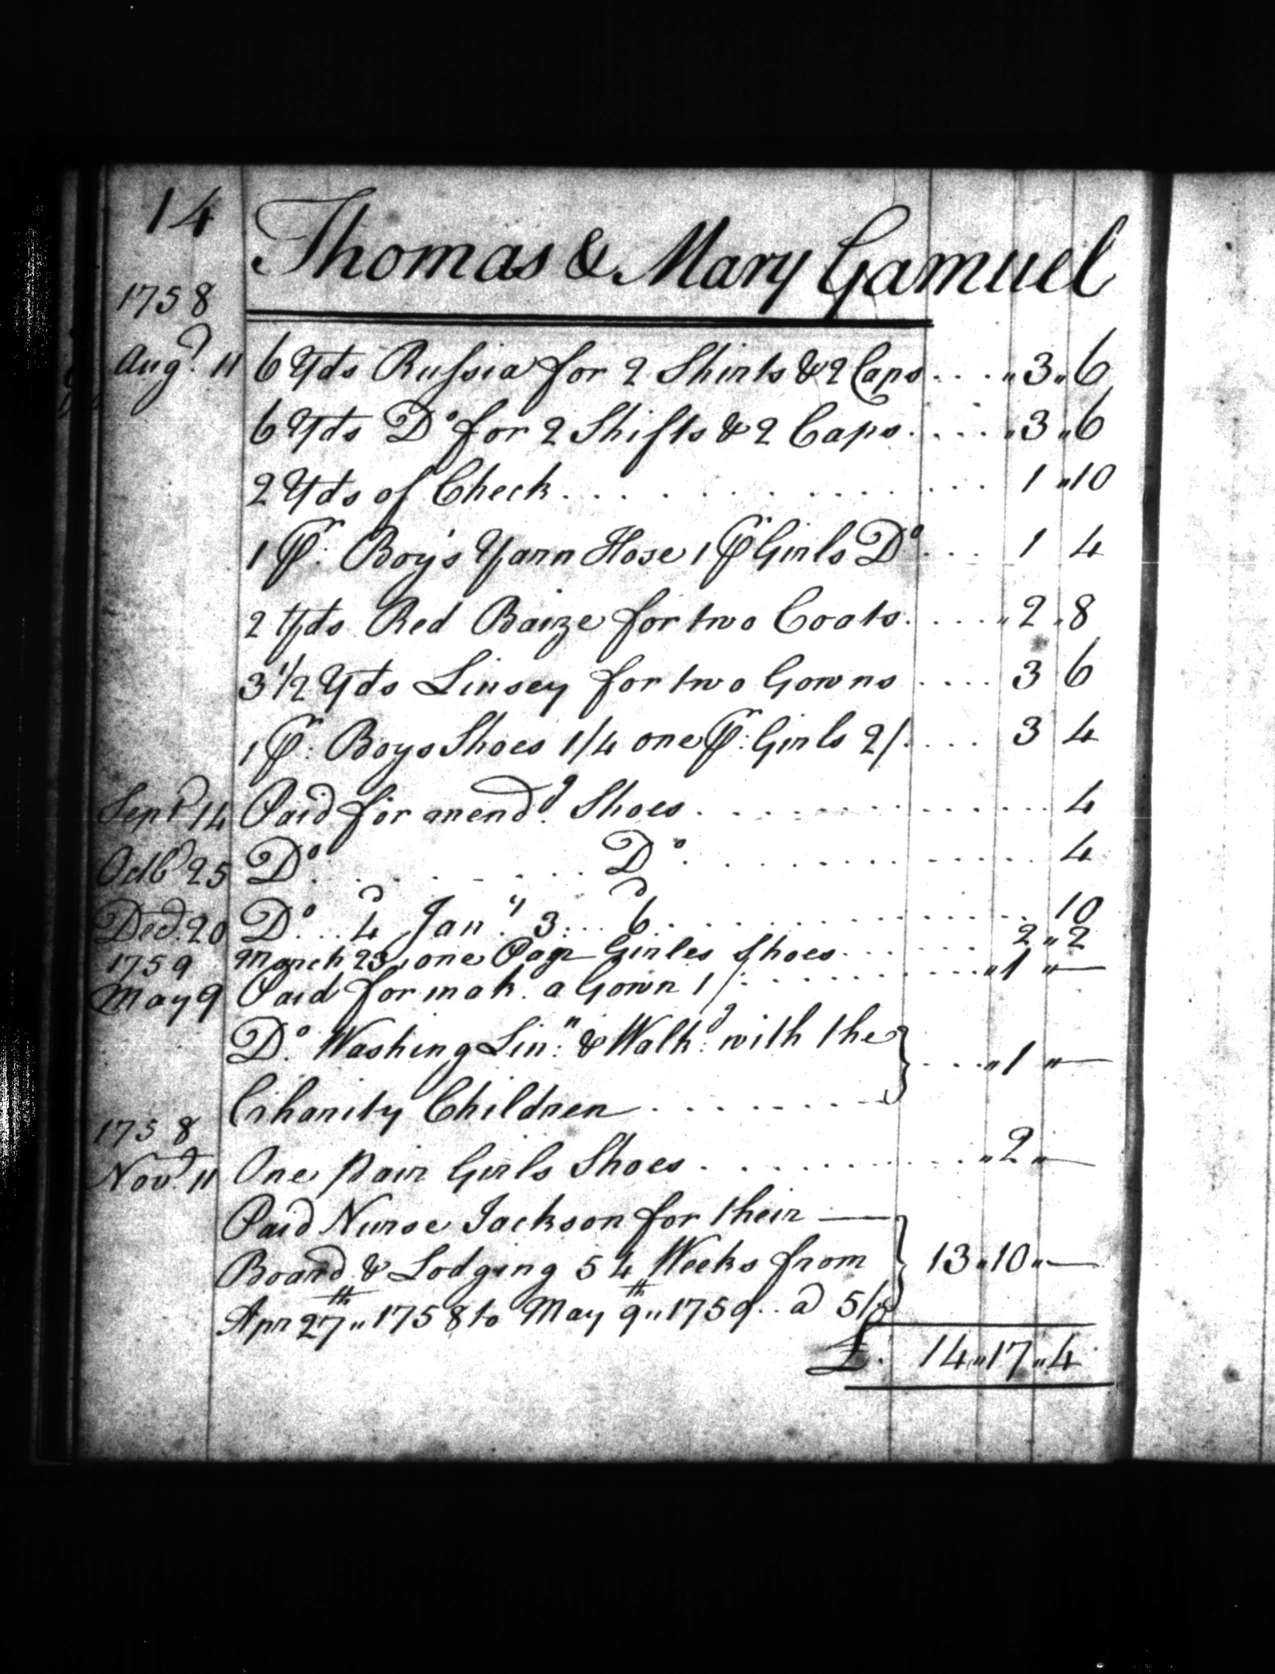 14
Thomas & Mary Gamuel
1758
Augt. 11 6 Yds Russia for 2 Shirts & 2 Caps .... „ 3 „ 6
6 Yds Do for 2 Shifts & 2 Caps .... „ 3 „ 6
2 Yds of Check .... 1 „ 10
1 Pr. Boy's Yarn Hose 1 Pr Girls Do .... 1 4
2 Yds Red Baize for two Coats .... „ 2 „ 8
3 1/2 Yds Linsey for two Gowns .... 3 6
1 Pr. Boys Shoes 1/4 one Pr. Girls 2/. .... 3 4
Sepr 14 Paid for mendg. Shoes .... 4
Octbr 25 Do. .... Do. .... 4
Decr. 20 Do. .. 4d Jany. 3 .. 6d .... 10
1759 March 23, one Pair Girles Shoes .... 2 „ 2
May 9 Paid for mak. a Gown 1/. .... „ 1 „ —
Do. Washing Linn. & Walkg. with the } .... „ 1 „ —
Charity Children ....
1758
Novr. 11 One pair Girls Shoes .... „ 2 „ —
Paid Nurse Jackson for their —
Board & Lodging 54 Weeks from } 13 „ 10 „ —
Apr 27th „ 1758 to May 9th „ 1759 .. a 5/p
£. 14 „ 17 „ 4